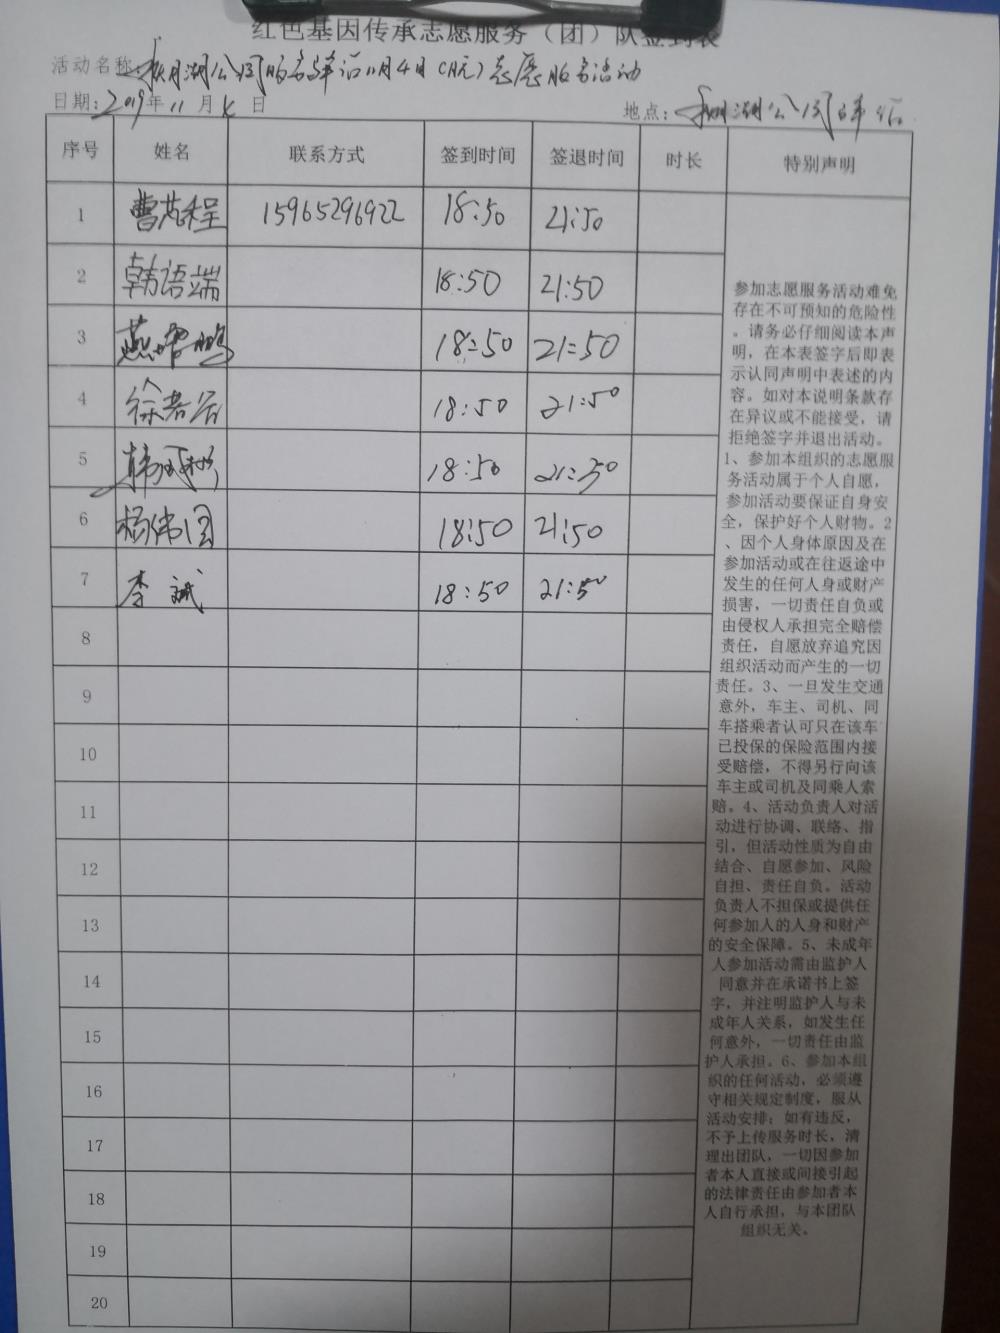 红色基因传承志愿服务（团）队签到表
活动名称：明湖公园服务驿站11月4日（周一）志愿服务活动
日期：2019年11月4日
地点：明湖公园驿站
序号 姓名 联系方式 签到时间 签退时间 时长 特别声明
1 曹芯程 15965296922 18:50 21:50
2 韩语端 18:50 21:50
3 18:50 21:50
4 徐若谷 18:50 21:50
5 韩 18:50 21:50
6 杨伟国 18:50 21:50
7 李斌 18:50 21:50
8
9
10
11
12
13
14
15
16
17
18
19
20
参加志愿服务活动难免
存在不可预知的危险性
。请务必仔细阅读本声
明，在本表签字后即表
示认同声明中表述的内
容。如对本说明条款存
在异议或不能接受，请
拒绝签字并退出活动。
1、参加本组织的志愿服
务活动属于个人自愿，
参加活动要保证自身安
全，保护好个人财物。2
、因个人身体原因及在
参加活动或在往返途中
发生的任何人身或财产
损害，一切责任自负或
由侵权人承担完全赔偿
责任，自愿放弃追究因
组织活动而产生的一切
责任。3、一旦发生交通
意外，车主、司机、同
车搭乘者认可只在该车
已投保的保险范围内接
受赔偿，不得另行向该
车主或司机及同乘人索
赔。4、活动负责人对活
动进行协调、联络、指
引，但活动性质为自由
结合、自愿参加、风险
自担、责任自负。活动
负责人不担保或提供任
何参加人的人身和财产
的安全保障。5、未成年
人参加活动需由监护人
同意并在承诺书上签
字，并注明监护人与未
成年人关系，如发生任
何意外，一切责任由监
护人承担。6、参加本组
织的任何活动，必须遵
守相关规定制度，服从
活动安排；如有违反，
不予上传服务时长，清
理出团队，一切因参加
者本人直接或间接引起
的法律责任由参加者本
人自行承担，与本团队
组织无关。